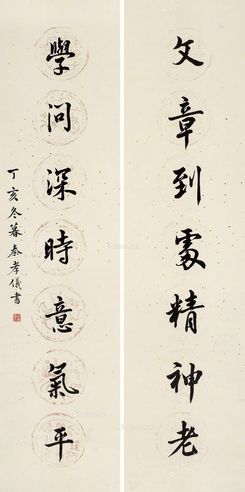 文章到處精神老
學問深時意氣平
丁亥冬暮秦孝儀書